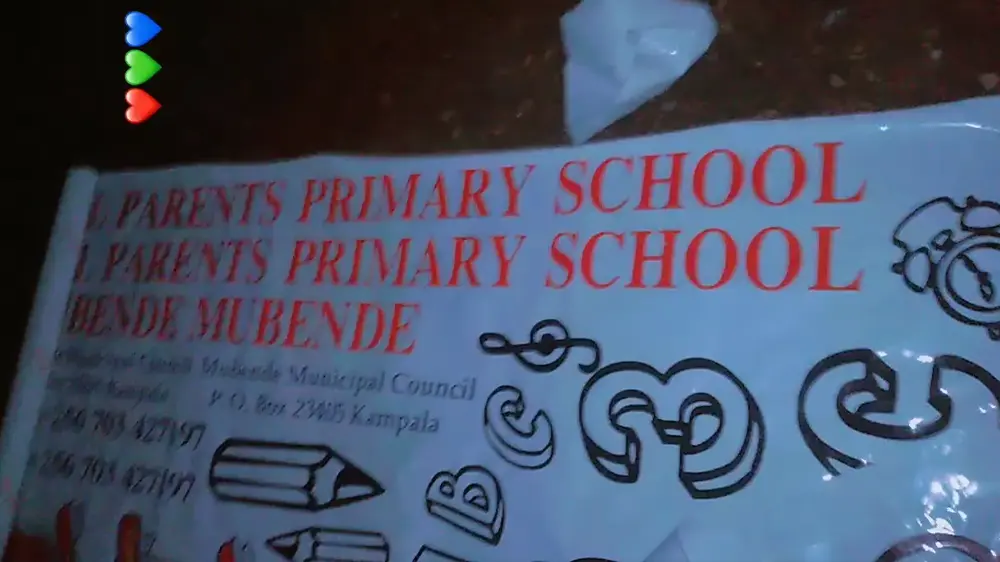 L PARENTS PRIMARY SCHOOL
L PARENTS PRIMARY SCHOOL
BENDE MUBENDE
Council Mubende Municipal Council
Kampala P. O. Box 23405 Kampala
256 703 427197
256 703 427197
C
B